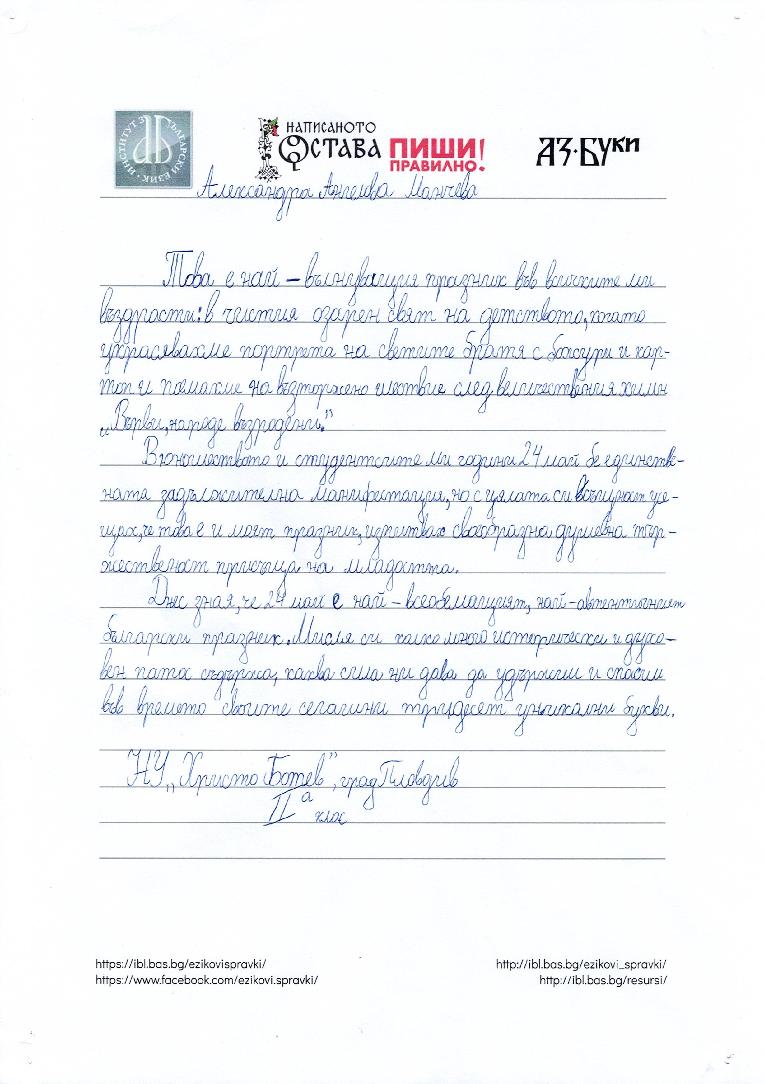 ИНСТИТУТ ЗА БЪЛГАРСКИ ЕЗИК
НАПИСАНОТО
ОСТАВА ПИШИ
ПРАВИЛНО!
АЗ·БУКИ
Александра Ангелова Манчева
Това е най – вълнуващия празник във всичките ми
въздрасти: в чистия озарен свят на детството, когато
украсявахме портрета на светите братя с божури и кар-
топ и поемахме на възторжено шествие след величествения химн
„Върви, народе възродени."
В юношеството и студентските ми години 24 май бе единстве-
ната задължителна манифестация, но с цялата си същност усе-
щах, че това е и моят празник, изпитвах своеобразна душевна тър-
жественост присъща на младостта.
Днес зная, че 24 май е най – всеобемащият, най – автентичният
български празник. Мисля си колко много исторически и духо-
вен патос съдържа, каква сила ни дава да удържим и спасим
във времето своите сегашни тридесет уникални букви.
НУ „Христо Ботев", град Пловдив
II а клас
https://ibl.bas.bg/ezikovispravki/ http://ibl.bas.bg/ezikovi_spravki/
https://www.facebook.com/ezikovi.spravki/ http://ibl.bas.bg/resursi/